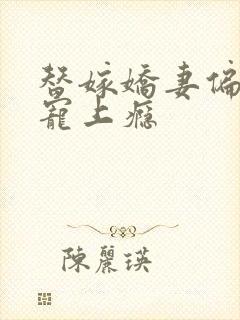 替嫁嬌妻偏
寵上癮
陳麗瑛